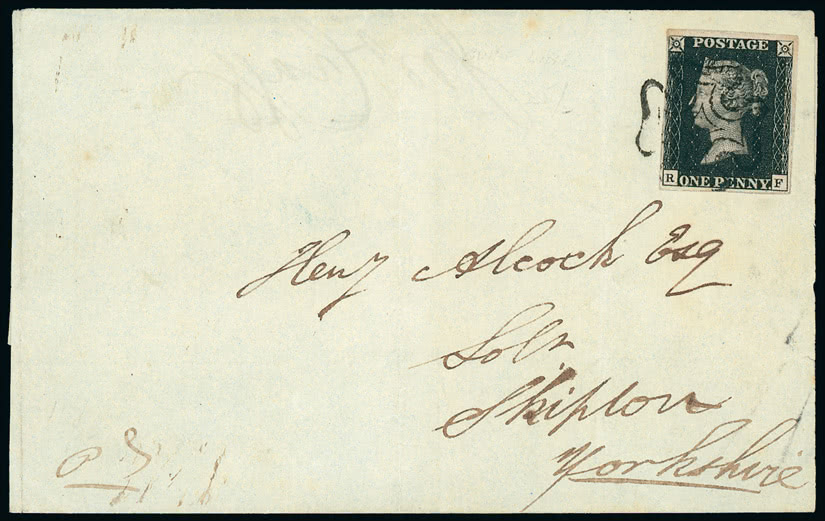 POSTAGE
R ONE PENNY F
Heny Alcock Esq
Solr
Skipton
Yorkshire